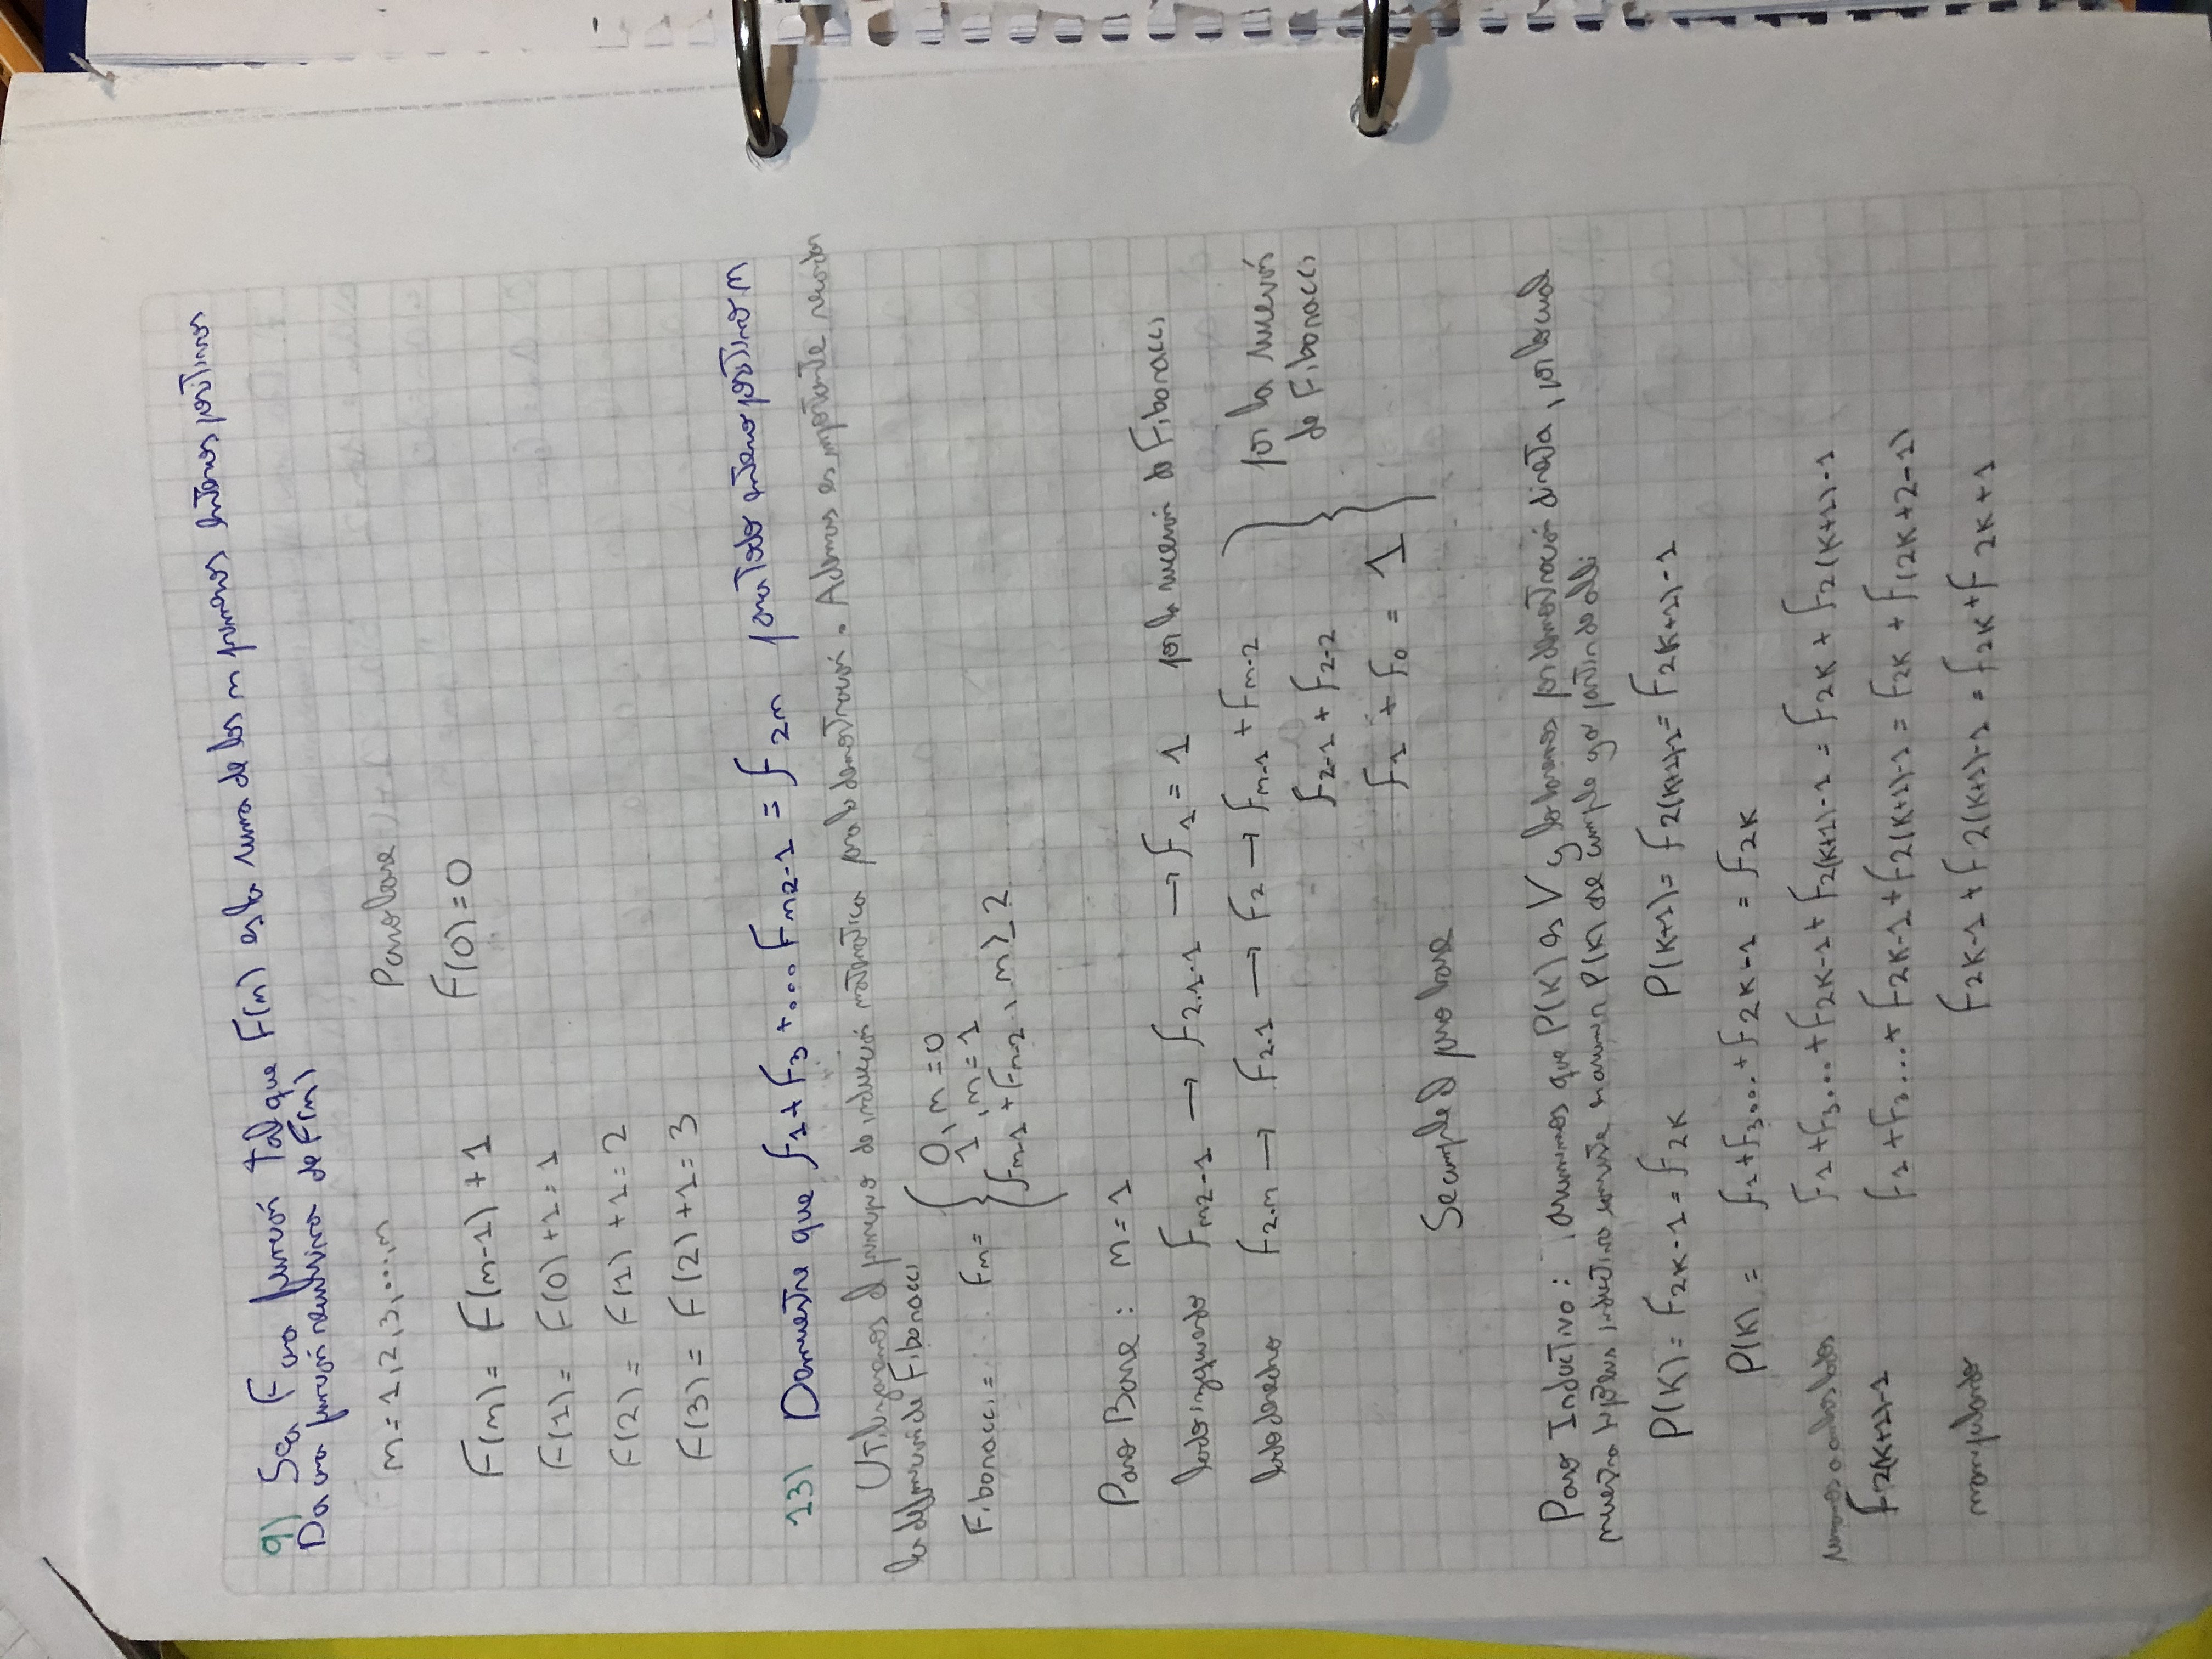 9) Sea F una función tal que F(n) es la suma de los n primeros enteros positivos
Da una función recursiva de F(n)
n = 1, 2, 3, ..., n
Paso base
F(n) = F(n-1) + 1
F(0) = 0
F(1) = F(0) + 1 = 1
F(2) = F(1) + 1 = 2
F(3) = F(2) + 1 = 3
13) Demuestre que f1 + F3 + ... Fn2-1 = f2n para todo entero positivo n
Utilizaremos el principio de inducción matemática para la demostración. Ademas es importante recordar
la definición de Fibonacci
Fibonacci = Fn = { 0, n = 0
1, n = 1
fn-1 + Fn-2, n ≥ 2
Paso Base: n = 1
lado izquierdo Fn2-1 → F2·1-1 → F1 = 1 por la sucesión de Fibonacci
lado derecho F2·n → F2·1 → F2 → Fn-1 + Fn-2
F2-1 + F2-2
F1 + F0 = 1
} por la sucesión
de Fibonacci
Se cumple el paso base
Paso Inductivo: asumimos que P(K) es V y lo haremos por demostración directa, por lo cual
nuestra hipótesis inductiva consiste en asumir P(K) se cumple y a partir de alli
P(K) = F2K-1 = f2K P(K+1) = F2(K+1)-1 = F2(K+1)-1
P(K) = f1 + F3... + F2K-1 = F2K
sumamos a ambos lados
F1 + F3... + F2K-1 + F2(K+1)-1 = F2K + F2(K+1)-1
F2(K+1)-1
F1 + F3... + F2K-1 + F2(K+1)-1 = F2K + F(2K+2-1)
manipulando
F2K-1 + F2(K+1)-1 = F2K + F2K+1